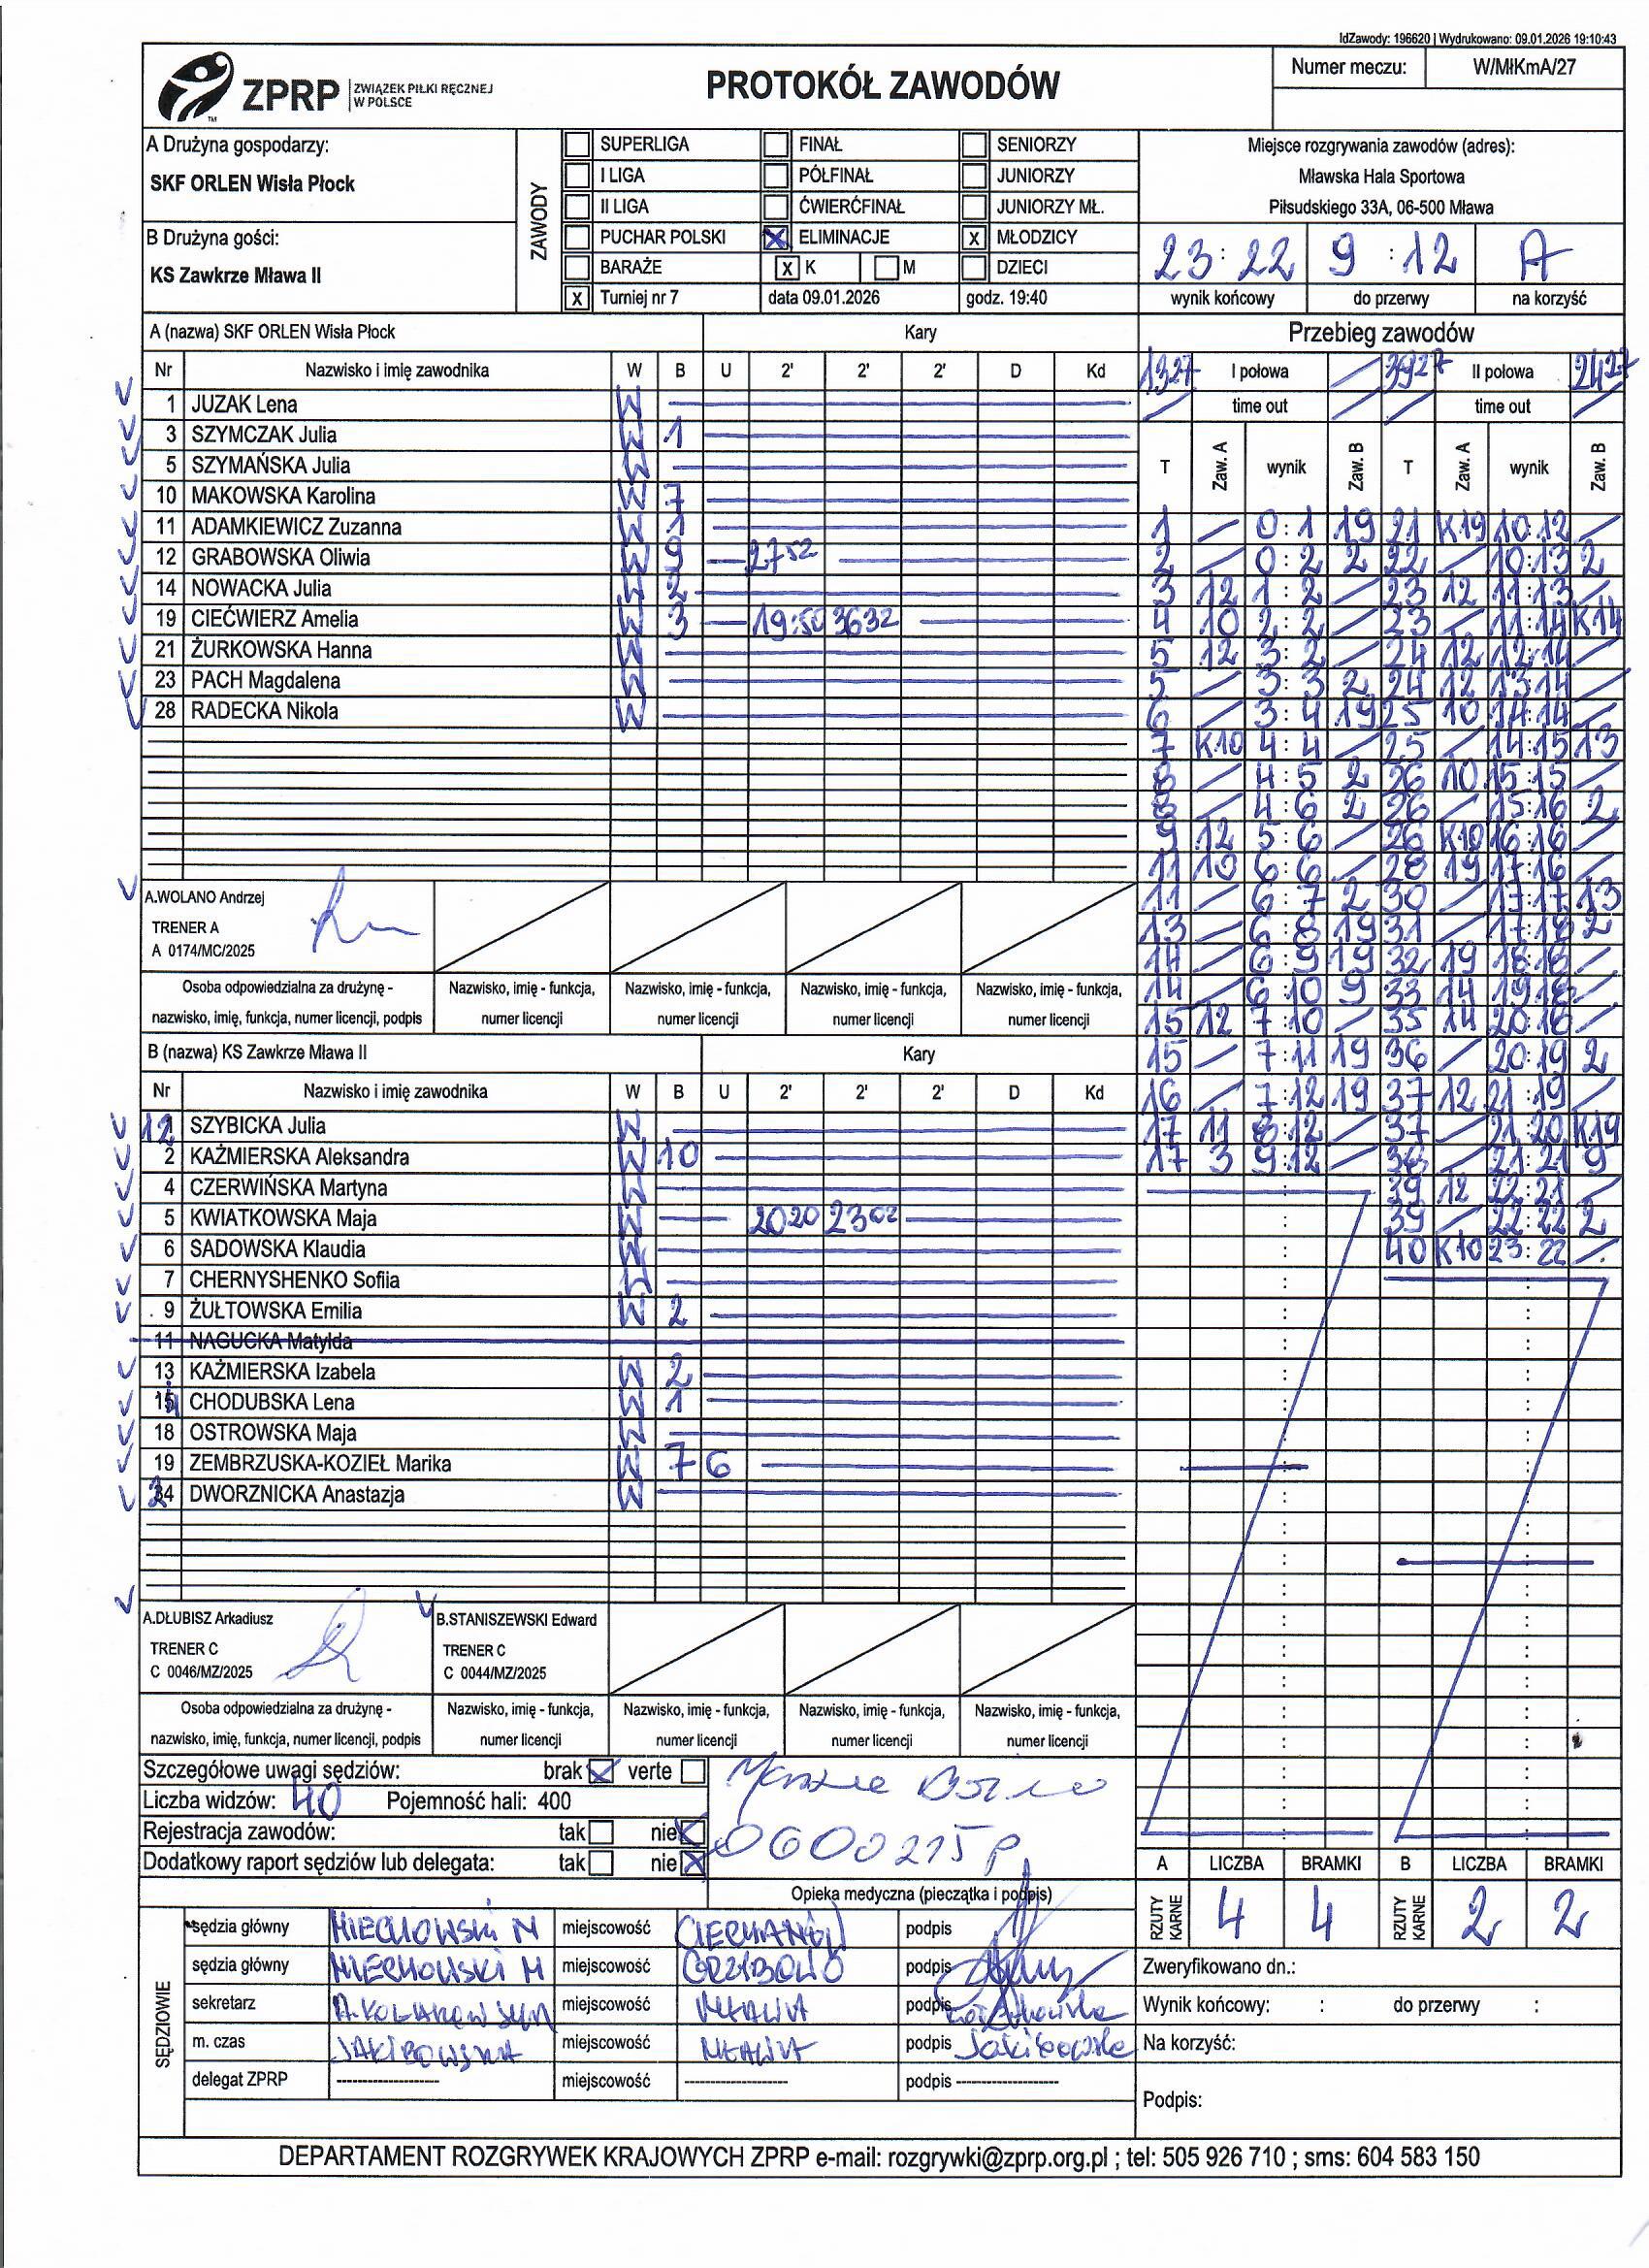 IdZawody: 196620 | Wydrukowano: 09.01.2026 19:10:43
ZPRP ZWIĄZEK PIŁKI RĘCZNEJ W POLSCE
PROTOKÓŁ ZAWODÓW
Numer meczu: W/MłKmA/27
A Drużyna gospodarzy:
SKF ORLEN Wisła Płock
B Drużyna gości:
KS Zawkrze Mława II
ZAWODY
SUPERLIGA FINAŁ SENIORZY
I LIGA PÓŁFINAŁ JUNIORZY
II LIGA ĆWIERĆFINAŁ JUNIORZY MŁ.
PUCHAR POLSKI X ELIMINACJE X MŁODZICY
BARAŻE X K M DZIECI
X Turniej nr 7 data 09.01.2026 godz. 19:40
Miejsce rozgrywania zawodów (adres):
Mławska Hala Sportowa
Piłsudskiego 33A, 06-500 Mława
23:22 9:12 A
wynik końcowy do przerwy na korzyść
A (nazwa) SKF ORLEN Wisła Płock Kary
Nr Nazwisko i imię zawodnika W B U 2' 2' 2' D Kd
1 JUZAK Lena W
3 SZYMCZAK Julia W 1
5 SZYMAŃSKA Julia W
10 MAKOWSKA Karolina W 7
11 ADAMKIEWICZ Zuzanna W 1
12 GRABOWSKA Oliwia W 9 2752
14 NOWACKA Julia W 2
19 CIEĆWIERZ Amelia W 3 19:50 3632
21 ŻURKOWSKA Hanna W
23 PACH Magdalena W
28 RADECKA Nikola W
A.WOLANO Andrzej
TRENER A
A 0174/MC/2025
Osoba odpowiedzialna za drużynę - nazwisko, imię, funkcja, numer licencji, podpis
Nazwisko, imię - funkcja, numer licencji
Nazwisko, imię - funkcja, numer licencji
Nazwisko, imię - funkcja, numer licencji
Nazwisko, imię - funkcja, numer licencji
B (nazwa) KS Zawkrze Mława II Kary
Nr Nazwisko i imię zawodnika W B U 2' 2' 2' D Kd
12 SZYBICKA Julia W
2 KAŹMIERSKA Aleksandra W 10
4 CZERWIŃSKA Martyna W
5 KWIATKOWSKA Maja W 2020 2302
6 SADOWSKA Klaudia W
7 CHERNYSHENKO Sofiia W
9 ŻUŁTOWSKA Emilia W 2
11 NAGUCKA Matylda
13 KAŹMIERSKA Izabela W 2
14 CHODUBSKA Lena W 1
18 OSTROWSKA Maja W
19 ZEMBRZUSKA-KOZIEŁ Marika W 7 6
DWORZNICKA Anastazja W
A.DŁUBISZ Arkadiusz
TRENER C
C 0046/MZ/2025
B.STANISZEWSKI Edward
TRENER C
C 0044/MZ/2025
Osoba odpowiedzialna za drużynę - nazwisko, imię, funkcja, numer licencji, podpis
Nazwisko, imię - funkcja, numer licencji
Nazwisko, imię - funkcja, numer licencji
Nazwisko, imię - funkcja, numer licencji
Nazwisko, imię - funkcja, numer licencji
Przebieg zawodów
1327 I połowa / 3927 II połowa 2427
/ time out / / time out /
T Zaw. A wynik Zaw. B T Zaw. A wynik Zaw. B
1 / 0:1 19 21 K19 10:12 /
2 / 0:2 2 22 / 10:13 2
3 12 1:2 / 23 12 11:13 /
4 10 2:2 / 23 / 11:14 K14
5 12 3:2 / 24 12 12:14 /
5 / 3:3 2 24 12 13:14 /
6 / 3:4 19 25 10 14:14 /
7 K10 4:4 / 25 / 14:15 13
8 / 4:5 2 26 10 15:15 /
8 / 4:6 2 26 / 15:16 2
9 12 5:6 / 26 K10 16:16 /
11 10 6:6 / 28 19 17:16 /
11 / 6:7 2 30 / 17:17 13
13 / 6:8 19 31 / 17:18 2
14 / 6:9 19 32 19 18:18 /
14 / 6:10 9 33 14 19:18 /
15 12 7:10 / 35 14 20:18 /
15 / 7:11 19 36 / 20:19 2
16 / 7:12 19 37 12 21:19 /
17 11 8:12 / 37 / 21:20 K19
17 3 9:12 / 38 / 21:21 9
39 12 22:21 /
39 / 22:22 2
40 K10 23:22 /
Szczegółowe uwagi sędziów: brak X verte
Liczba widzów: 40 Pojemność hali: 400
Rejestracja zawodów: tak nie X
Dodatkowy raport sędziów lub delegata: tak nie X
0600215P
Opieka medyczna (pieczątka i podpis)
A LICZBA BRAMKI B LICZBA BRAMKI
RZUTY KARNE 4 4 RZUTY KARNE 2 2
SĘDZIOWIE
sędzia główny MIECHOWSKI M miejscowość CIECHANÓW podpis
sędzia główny MIECHOWSKI M miejscowość podpis
sekretarz miejscowość MŁAWA podpis
m. czas JAKIBOWSKA miejscowość MŁAWA podpis
delegat ZPRP ------------------- miejscowość ------------------- podpis -------------------
Zweryfikowano dn.:
Wynik końcowy: : do przerwy :
Na korzyść:
Podpis:
DEPARTAMENT ROZGRYWEK KRAJOWYCH ZPRP e-mail: rozgrywki@zprp.org.pl ; tel: 505 926 710 ; sms: 604 583 150